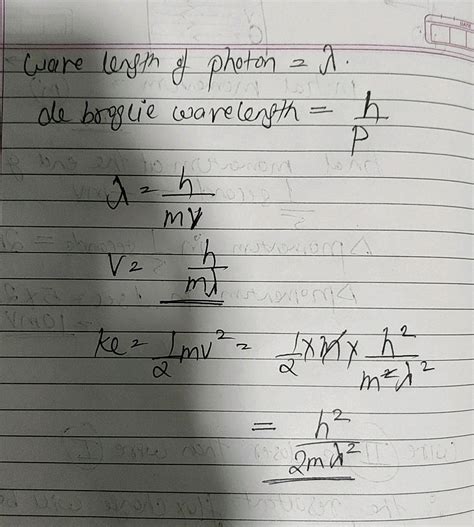 wave length of photon = λ.
de broglie wavelength = h/p
λ = h/mv
v = h/mλ
ke = 1/2 mv² = 1/2 × m × h²/m²λ²
= h²/2mλ²